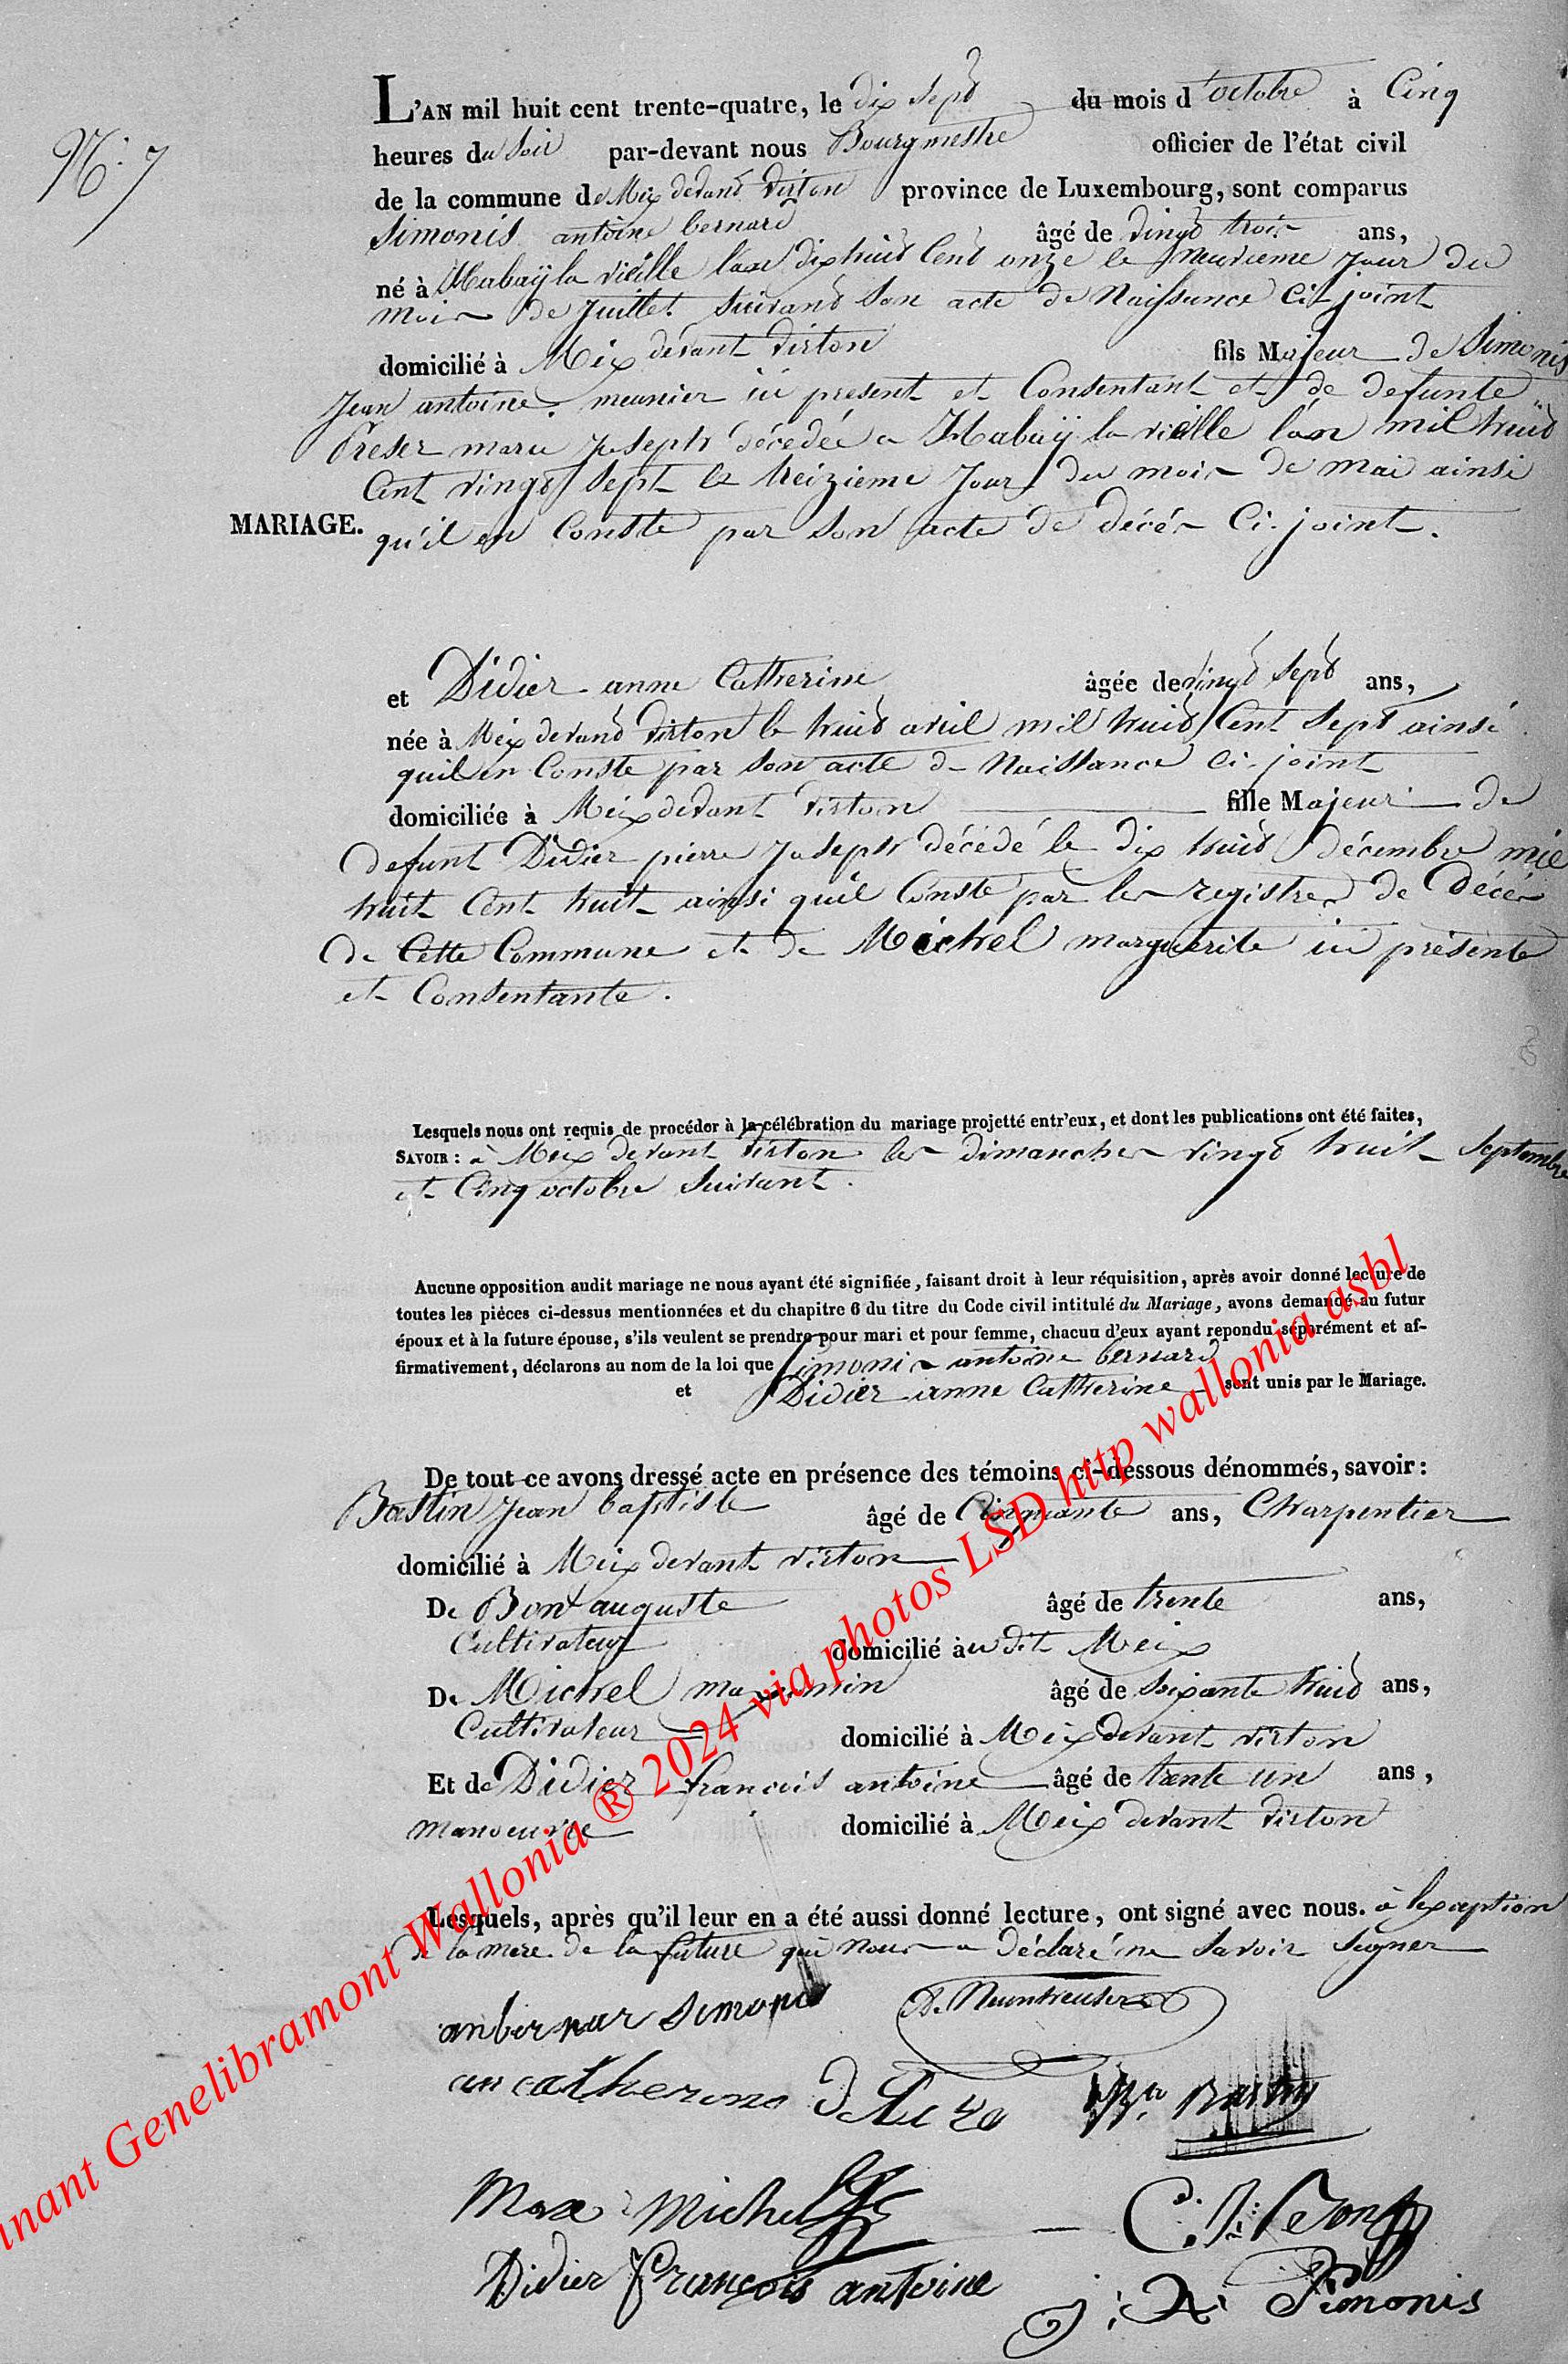 N.° 7
L'AN mil huit cent trente-quatre, le dix sept du mois d'octobre à Cinq
heures du Soir par-devant nous Bourgmestre officier de l'état civil
de la commune de Meix devant virton province de Luxembourg, sont comparus
Simonis antoine bernard âgé de vingt trois ans,
né à Habaÿ la vieille l'an dix huit Cent onze le neuvieme jour du
mois de Juillet suivant son acte de Naissance Ci-joint
domicilié à Meix devant virton fils Majeur de Simonis
Jean antoine. meunier ici present et Consentant et de defunte
Preser marie Joseph décedée a Habaÿ la vieille l'an mil huit
Cent vingt sept le treizieme Jour du mois de mai ainsi
MARIAGE. qu'il en Conste par son acte de décés Ci-joint.
et Didier anne Catherine âgée de vingt sept ans,
née à Meix devant virton le huit avril mil huit Cent sept ainsi
quil en Conste par son acte de Naissance Ci-joint
domiciliée à Meix devant virton fille Majeur de
defunt Didier pierre Joseph décédé le dix huit décembre mil
huit Cent huit ainsi quil Conste par les registres de décés
de Cette Commune et de Michel marguerite ici présente
et Consentante.
Lesquels nous ont requis de procéder à la célébration du mariage projetté entr'eux, et dont les publications ont été faites,
SAVOIR : à Meix devant virton les dimanches vingt huit septembre
et Cinq octobre suivant.
Aucune opposition audit mariage ne nous ayant été signifiée, faisant droit à leur réquisition, après avoir donné lecture de
toutes les pièces ci-dessus mentionnées et du chapitre 6 du titre du Code civil intitulé du Mariage, avons demandé au futur
époux et à la future épouse, s'ils veulent se prendre pour mari et pour femme, chacun d'eux ayant repondu séparément et af-
firmativement, déclarons au nom de la loi que Simonis antoine bernard
et Didier anne Catherine sont unis par le Mariage.
De tout ce avons dressé acte en présence des témoins ci-dessous dénommés, savoir :
Bastin Jean baptiste âgé de Cinquante ans, Charpentier
domicilié à Meix devant virton
De Bont auguste âgé de trente ans,
Cultivateur domicilié à u dit Meix
De Michel maximin âgé de soixante huit ans,
Cultivateur domicilié à Meix devant virton
Et de Didier francois antoine âgé de trente un ans,
manoeuvre domicilié à Meix devant virton
Lesquels, après qu'il leur en a été aussi donné lecture, ont signé avec nous. à lexception
de la mere de la future qui nous a déclaré ne savoir signer
anbernar simonis
an catherine
Bastin
Max Michel
Didier françois antoine
J: A: Simonis
inant Genelibramont Wallonia ® 2024 via photos LSD http wallonia asbl